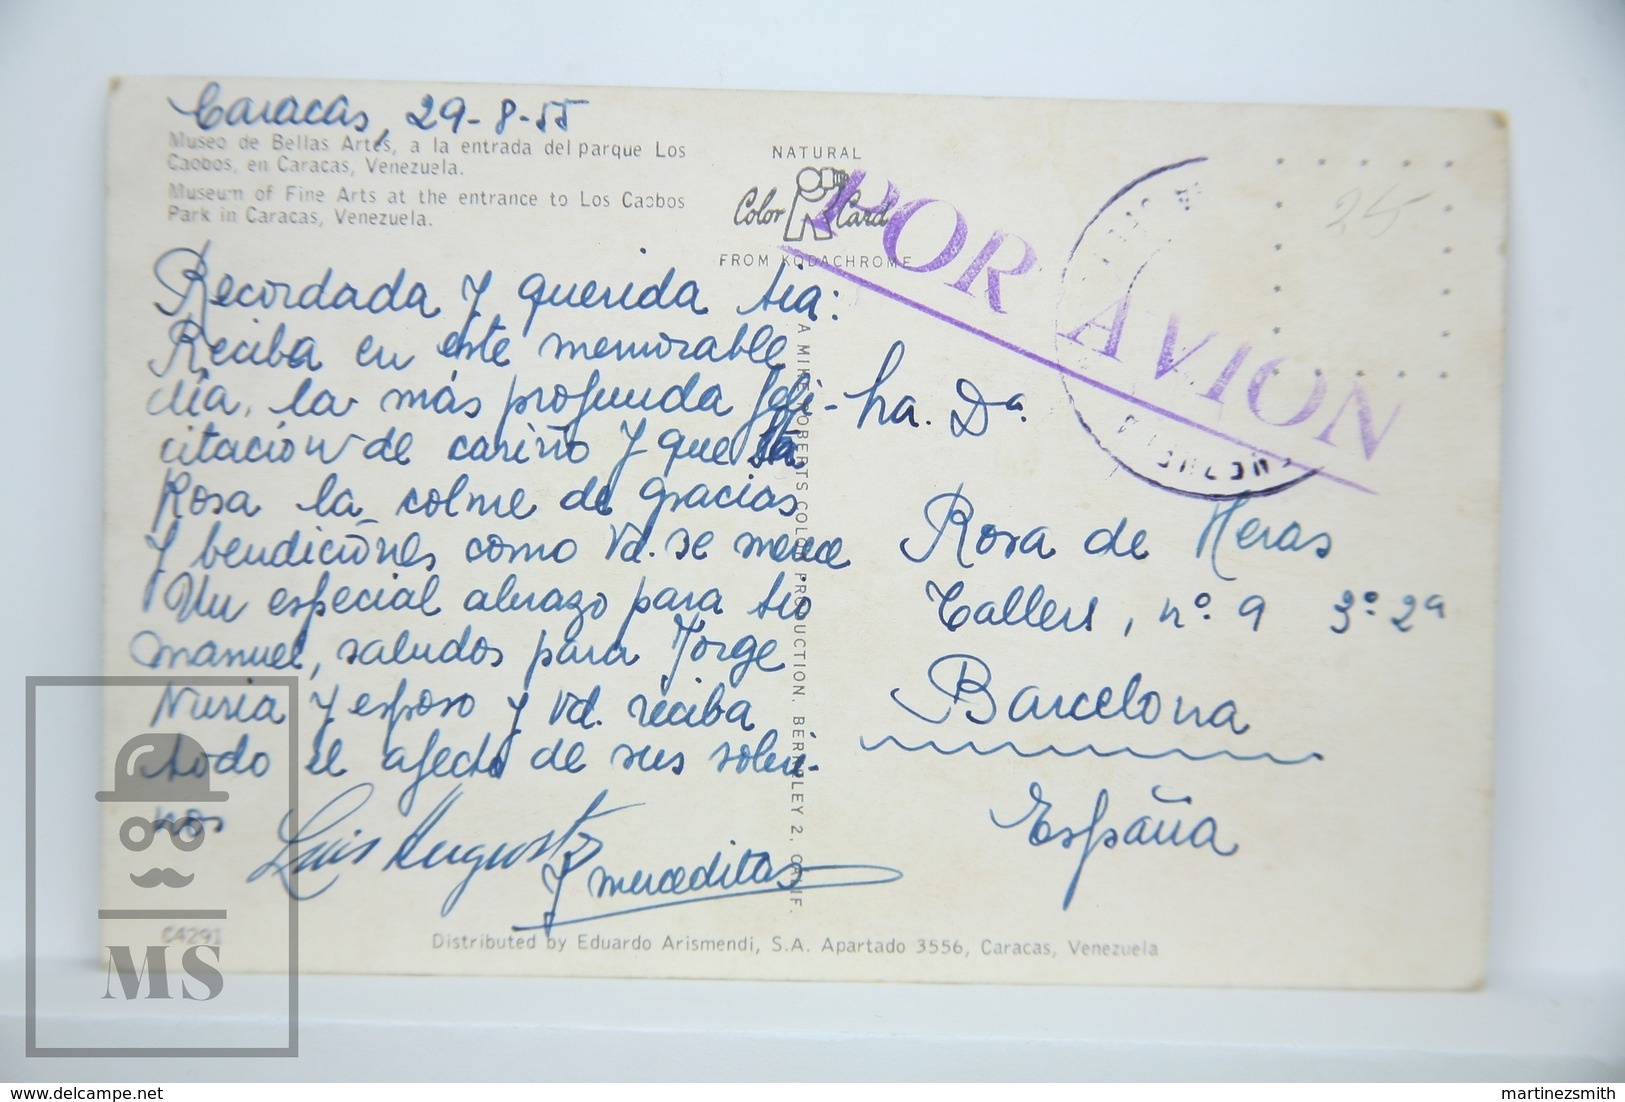 Caracas, 29-8-55
Museo de Bellas Artes, a la entrada del parque Los
Caobos, en Caracas, Venezuela.
Museum of Fine Arts at the entrance to Los Caobos
Park in Caracas, Venezuela.
Recordada y querida tia:
Reciba en este memorable
día, la más profunda feli-
citación de cariño y que Sta
Rosa la colme de gracias
y bendiciones como Vd. se merece
Un especial abrazo para tio
manuel, saludos para Jorge
Nuria y esposo y Vd. reciba
todo el afecto de sus sobri-
nos
Luis Augusto
y merceditas
C4291
NATURAL
Color Card
FROM KODACHROME
A MIKE ROBERTS COLOR PRODUCTION, BERKELEY 2, CALIF.
POR AVION
25
ha. Dª.
Rosa de Heras
Tallers, nº. 9 3º 2ª
Barcelona
España
Distributed by Eduardo Arismendi, S.A. Apartado 3556, Caracas, Venezuela
MS
martinezsmith
www.delcampe.net